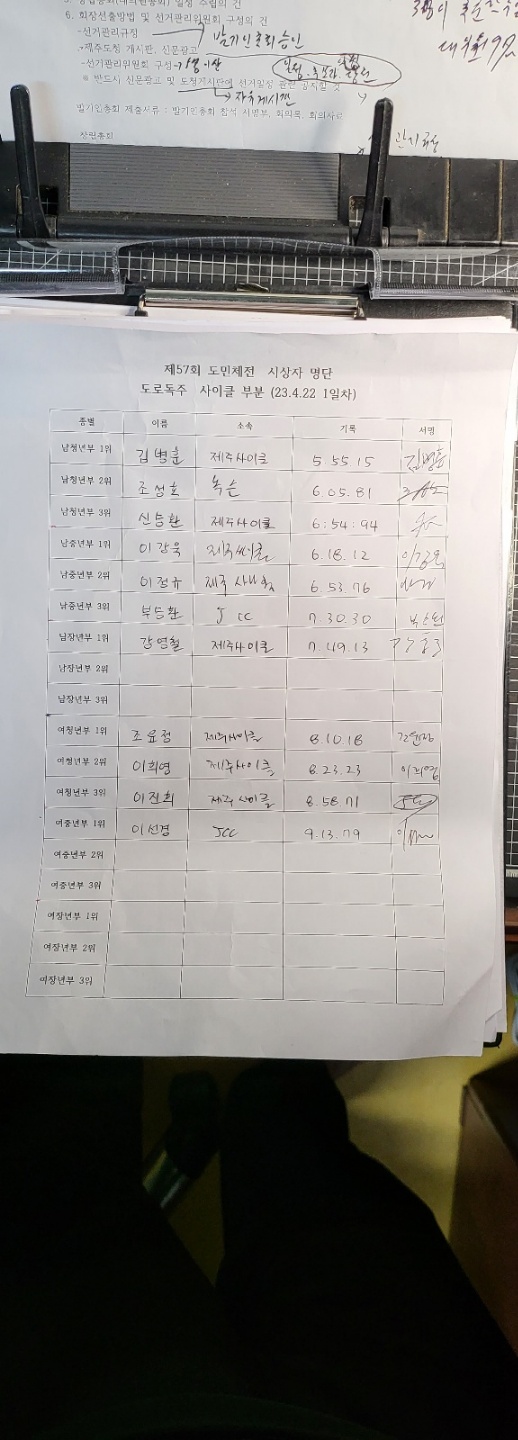 6. 회장선출방법 및 선거관리위원회 구성의 건
-선거관리규정 발기인총회승인
제주도청 게시판, 신문광고
-선거관리위원회 구성
※ 반드시 신문광고 및 도청게시판에 선거일정 관련 공지할 것
발기인총회 제출서류 : 발기인총회 참석 서명부, 회의록, 회의자료
창립총회
제57회 도민체전 시상자 명단
도로독주 사이클 부분 (23.4.22 1일차)
종별 이름 소속 기록 서명
남청년부 1위 김병훈 제주사이클 5.55.15 김병훈
남청년부 2위 조성호 6.05.81
남청년부 3위 신승환 제주사이클 6:54:94
남중년부 1위 이강욱 제주싸이클 6.18.12 이강욱
남중년부 2위 이정규 제주 6.53.76
남중년부 3위 부등환 J CC 7.30.30
남장년부 1위 강영철 제주사이클 7.49.13
남장년부 2위
남장년부 3위
여청년부 1위 조윤정 제주사이클 8.10.18
여청년부 2위 이희영 제주사이클 8.23.23 이희영
여청년부 3위 이진희 제주사이클 8.58.71
여중년부 1위 이선경 JCC 9.13.79
여중년부 2위
여중년부 3위
여장년부 1위
여장년부 2위
여장년부 3위